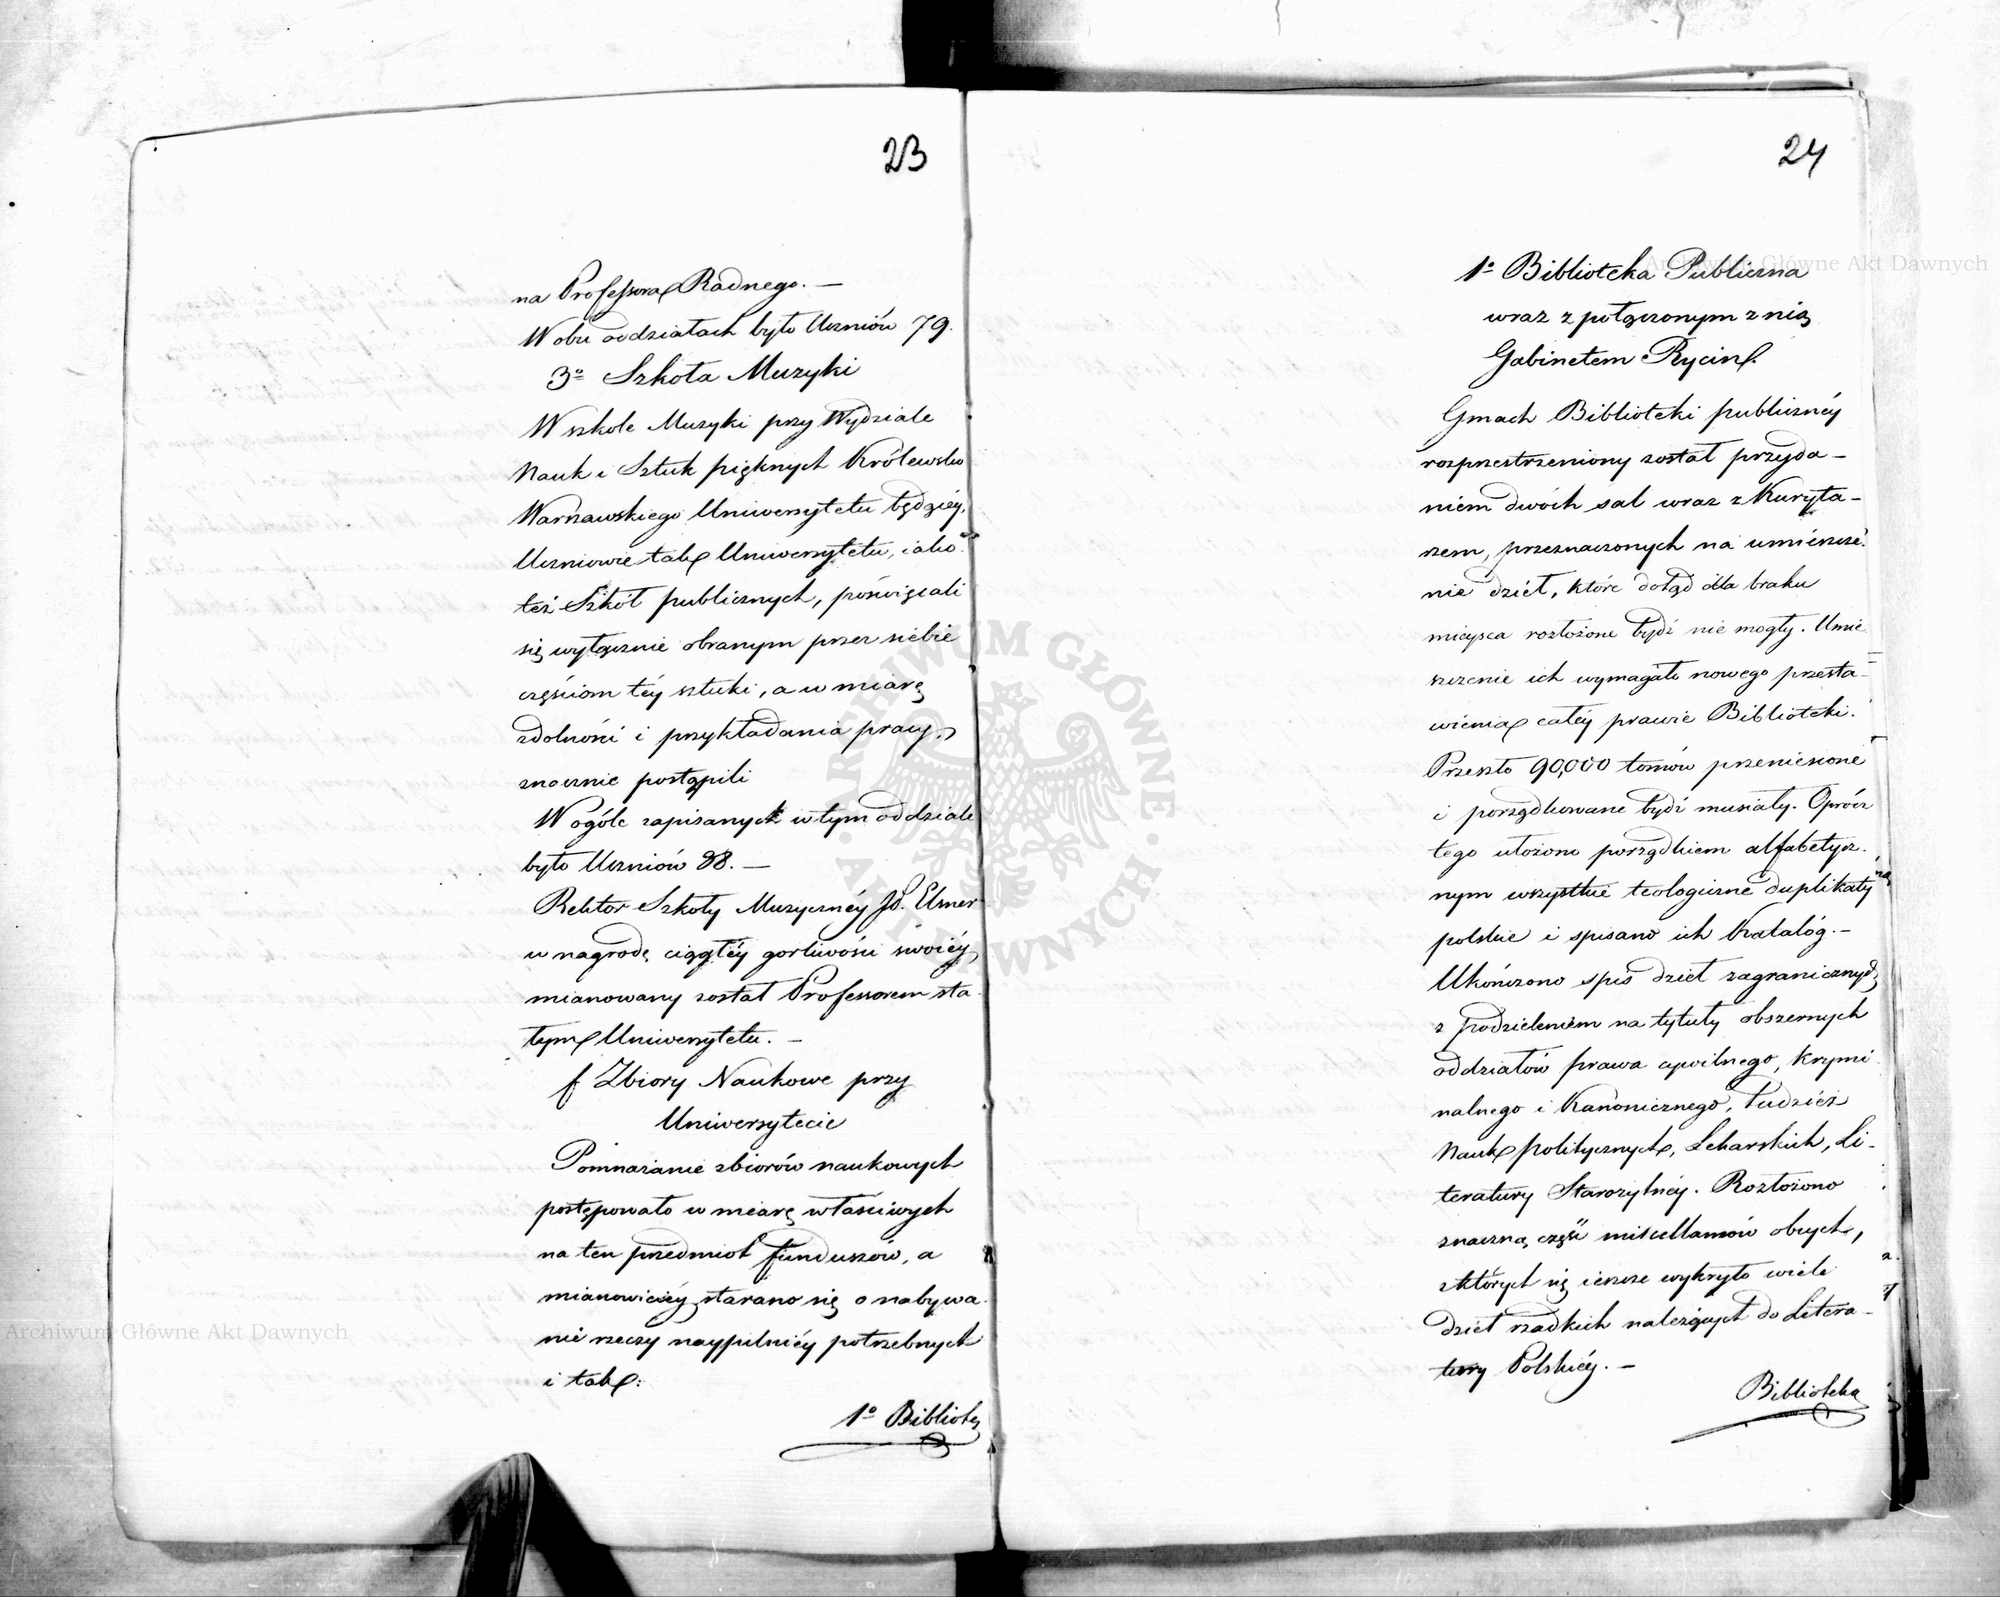 23
na Professora Radnego. —
W obu oddziałach było Uczniów 79.
3o Szkoła Muzyki
W szkole Muzyki przy Wydziale
Nauk i Sztuk pięknych Królewsko
Warszawskiego Uniwersytetu będącéy,
Uczniowie tak Uniwersytetu, iako
też Szkół publicznych, poświęcali
się wyłącznie obranym przez siebie
częściom téy sztuki, a w miarę
zdolności i przykładania pracy,
znacznie postąpili
W ogóle zapisanych w tym oddziale
było Uczniów 88. —
Rektor Szkoły Muzycznéy Jó. Elsner
w nagrodę ciągłéy gorliwości swoiéy
mianowany został Professorem sta
łym Uniwersytetu. —
f Zbiory Naukowe przy
Uniwersytecie
Pomnażanie zbiorów naukowych
postępowało w miarę właściwych
na ten przedmiot funduszów, a
mianowiciéy starano się o nabywa
nie rzeczy naypilniéy potrzebnych
i tak:
1o Bibliote
24
1o Biblioteka Publiczna
wraz z połączonym z nią
Gabinetem Rycin.
Gmach Biblioteki publicznéy
rozprzestrzeniony został przyda-
niem dwóch sal wraz z Kuryta-
rzem, przeznaczonych na umieszcze
nie dzieł, które dotąd dla braku
mieysca rozłożone bydź nie mogły. Umie
szczenie ich wymagało nowego przesta-
wienia całéy prawie Biblioteki.
Przeszło 90,000 tomów przeniesione
i porządkowane bydź musiały. Oprócz
tego ułożono porządkiem alfabetycz-
nym wszystkie teologiczne duplikaty
polskie i spisano ich Katalóg. —
Ukończono spis dzieł zagranicznych
z podzieleniem na tytuły obszernych
oddziałów prawa cywilnego, krymi
nalnego i Kanonicznego, tudzież
Nauk politycznych, Lekarskich, Li-
teratury Starożytnéy. Rozłożono
znaczną część miscellanów obcych,
z których się ieszcze wykryło wiele
dzieł rzadkich należących do Litera-
tury Polskiéy. —
Biblioteka
Archiwum Główne Akt Dawnych
Archiwum Główne Akt Dawnych
ARCHIWUM GŁÓWNE · AKT DAWNYCH ·